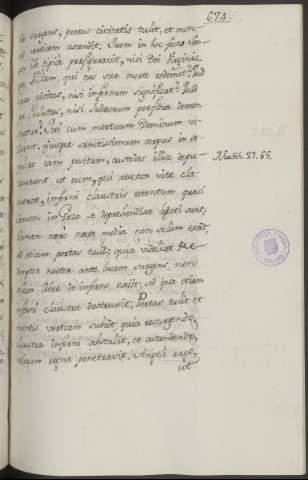 674
te surgens, portas civitatis tulit, et mon-
tis verticem ascendit. Quem in hoc facto Sam-
son ille typice præfiguravit, nisi Dei Virginisque
Filium, qui nos sua morte redemit? Quid
Gaza civitas, nisi infernum significat? Quid
per Philistæos, nisi Judæorum perfidia demon-
stratur? Qui cum mortuum Dominum vi-
derent, ejusque sanctissimum corpus in se-
pulcro jam positum, custodes illico depu-
Matth. 27. 65.
taverunt, et eum, qui auctor vitæ cla-
ruerat, inferni claustris retentum quasi
Samson in Gaza se deprehendisse lætati sunt.
Samson vero nocte media non solum exiit,
sed etiam portas tulit; quia videlicet Re-
demptor noster ante lucem surgens, non
solum liber de inferno exiit, sed ipsa etiam
inferni claustra destruxit. Portas tulit et
montis verticem subiit, quia resurgendo
claustra inferni abstulit, et ascendendo
cælorum regna penetravit. Angeli ergo,
ut